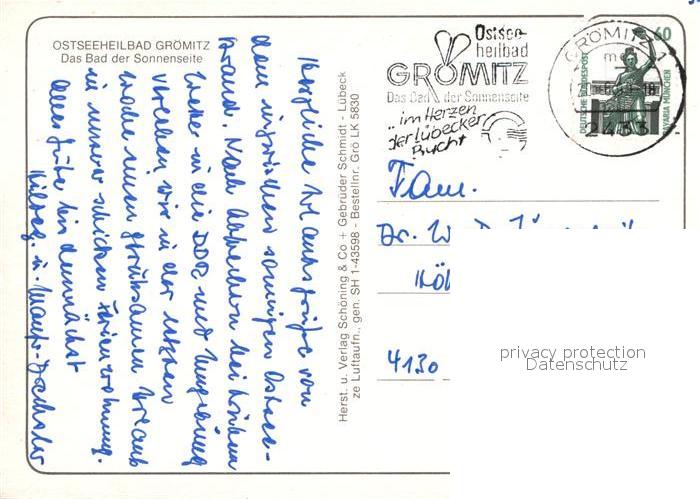 OSTSEEHEILBAD GRÖMITZ
Das Bad der Sonnenseite
Herzliche Urlaubsgrüße von
dem inzwischen sonnigen Ostsee-
strand. Nach Abstechern bei trübem
Wetter in die DDR und Umgebung
verleben wir in der letzten
Woche einen geruhsamen Urlaub
in unserer schicken Ferienwohnung.
Alles Gute bis demnächst
u.
Herst. u. Verlag Schöning & Co + Gebrüder Schmidt - Lübeck
ze Luftaufn., gen. SH 1-43598 - Bestellnr. Grö LK 5830
Ostsee-
heilbad
GRÖMITZ
Das Bad der Sonnenseite
... im Herzen
der Lübecker
Bucht
GRÖMITZ 1
2433
60
DEUTSCHE BUNDESPOST
BAVARIA MÜNCHEN
Fam.
Dr. W.
4130
privacy protection
Datenschutz